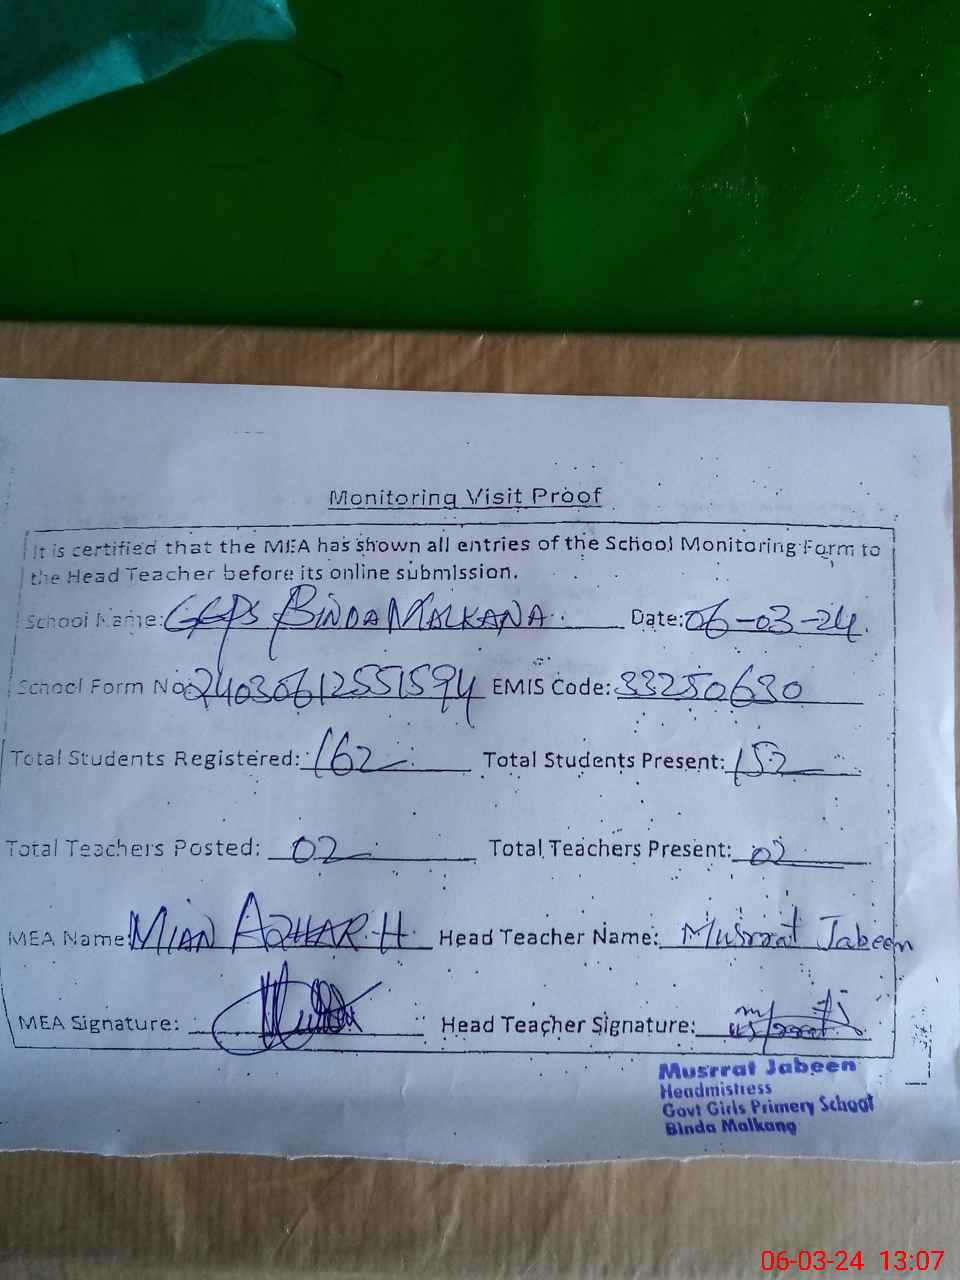 Monitoring Visit Proof
It is certified that the MEA has shown all entries of the School Monitoring Form to
the Head Teacher before its online submission.
School Name: GGPS BINDA MALKANA Date: 06-03-24
School Form No: 24030612551594 EMIS Code: 33250630
Total Students Registered: 162 Total Students Present: 152
Total Teachers Posted: 02 Total Teachers Present: 02
MEA Name: MIAN AZHAR.H Head Teacher Name: Musrrat Jabeen
MEA Signature: Head Teacher Signature:
Musrrat Jabeen
Headmistress
Govt Girls Primery School
Binda Malkana
06-03-24 13:07